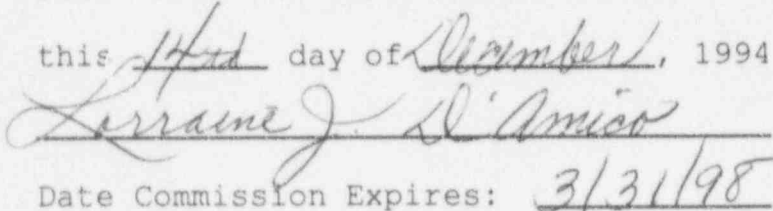 this 14th day of December, 1994
Lorraine J. D'Amico
Date Commission Expires: 3/31/98